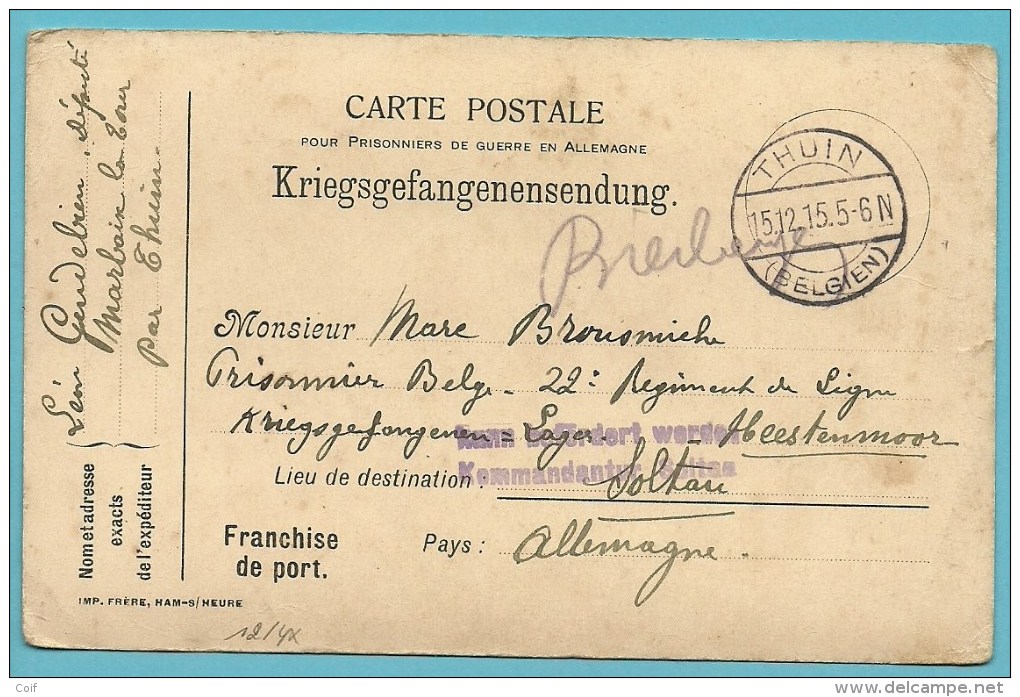 CARTE POSTALE
POUR PRISONNIERS DE GUERRE EN ALLEMAGNE
Kriegsgefangenensendung.
THUIN
15.12.15.5-6N
(BELGIEN)
Monsieur Marc Brousmiche
Prisonnier Belge - 22e Regiment de Ligne
Kriegsgefangenen = Lager - Heestenmoor
Kann befördert werden
Kommandantur Soltau
Lieu de destination : Soltau
Franchise
de port.
Pays : Allemagne.
Nom et adresse
exacts
de l'expéditeur
Léon Gendebien, député
Marbaix la Tour
par Thuin.
IMP. FRÈRE, HAM-S/HEURE
12/4x
Coif
www.delcampe.net